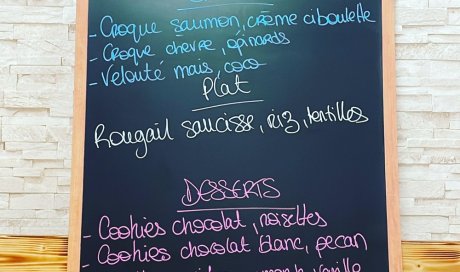 - Croque saumon, crème ciboulette
- Croque chèvre, épinards
- Velouté maïs, coco
Plat
Rougail saucisse, riz, lentilles
DESSERTS
- Cookies chocolat, noisettes
- Cookies chocolat blanc, pecan
vanille